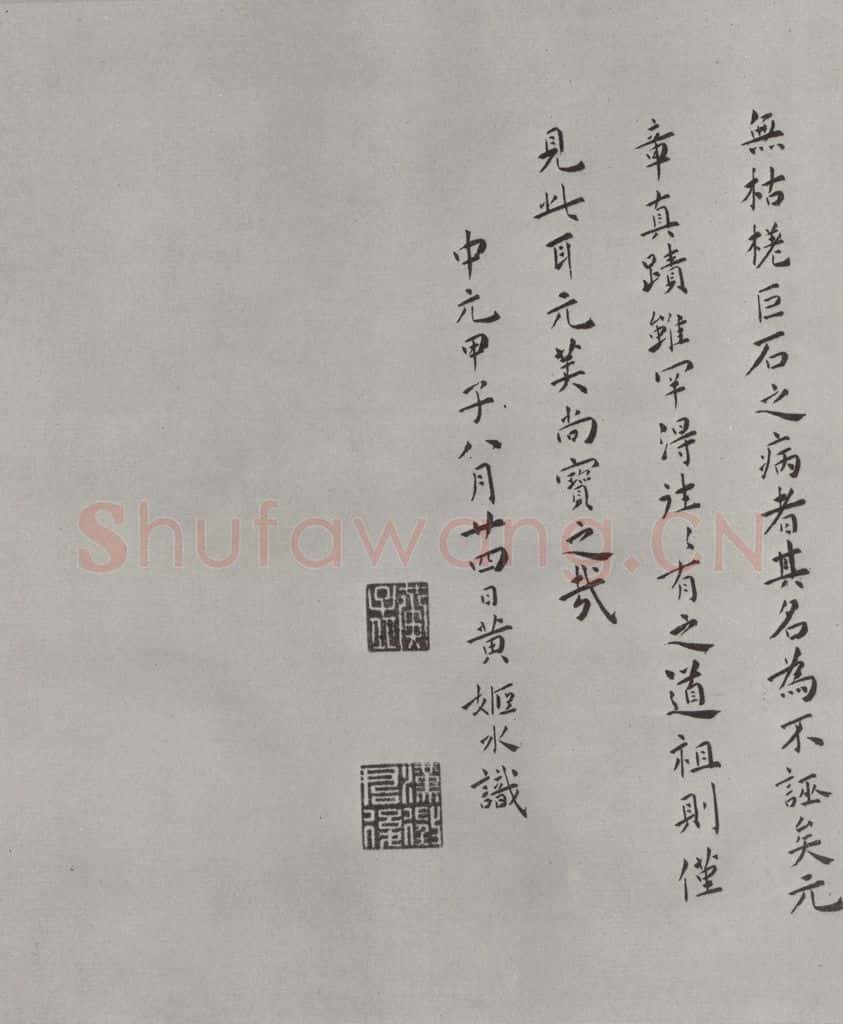 無枯槎巨石之病者其名為不誣矣元
章真蹟雖罕得往〻有之道祖則僅
見此耳元美尚寶之哉
中元甲子八月廿四日黃姬水識
Shufawang.CN